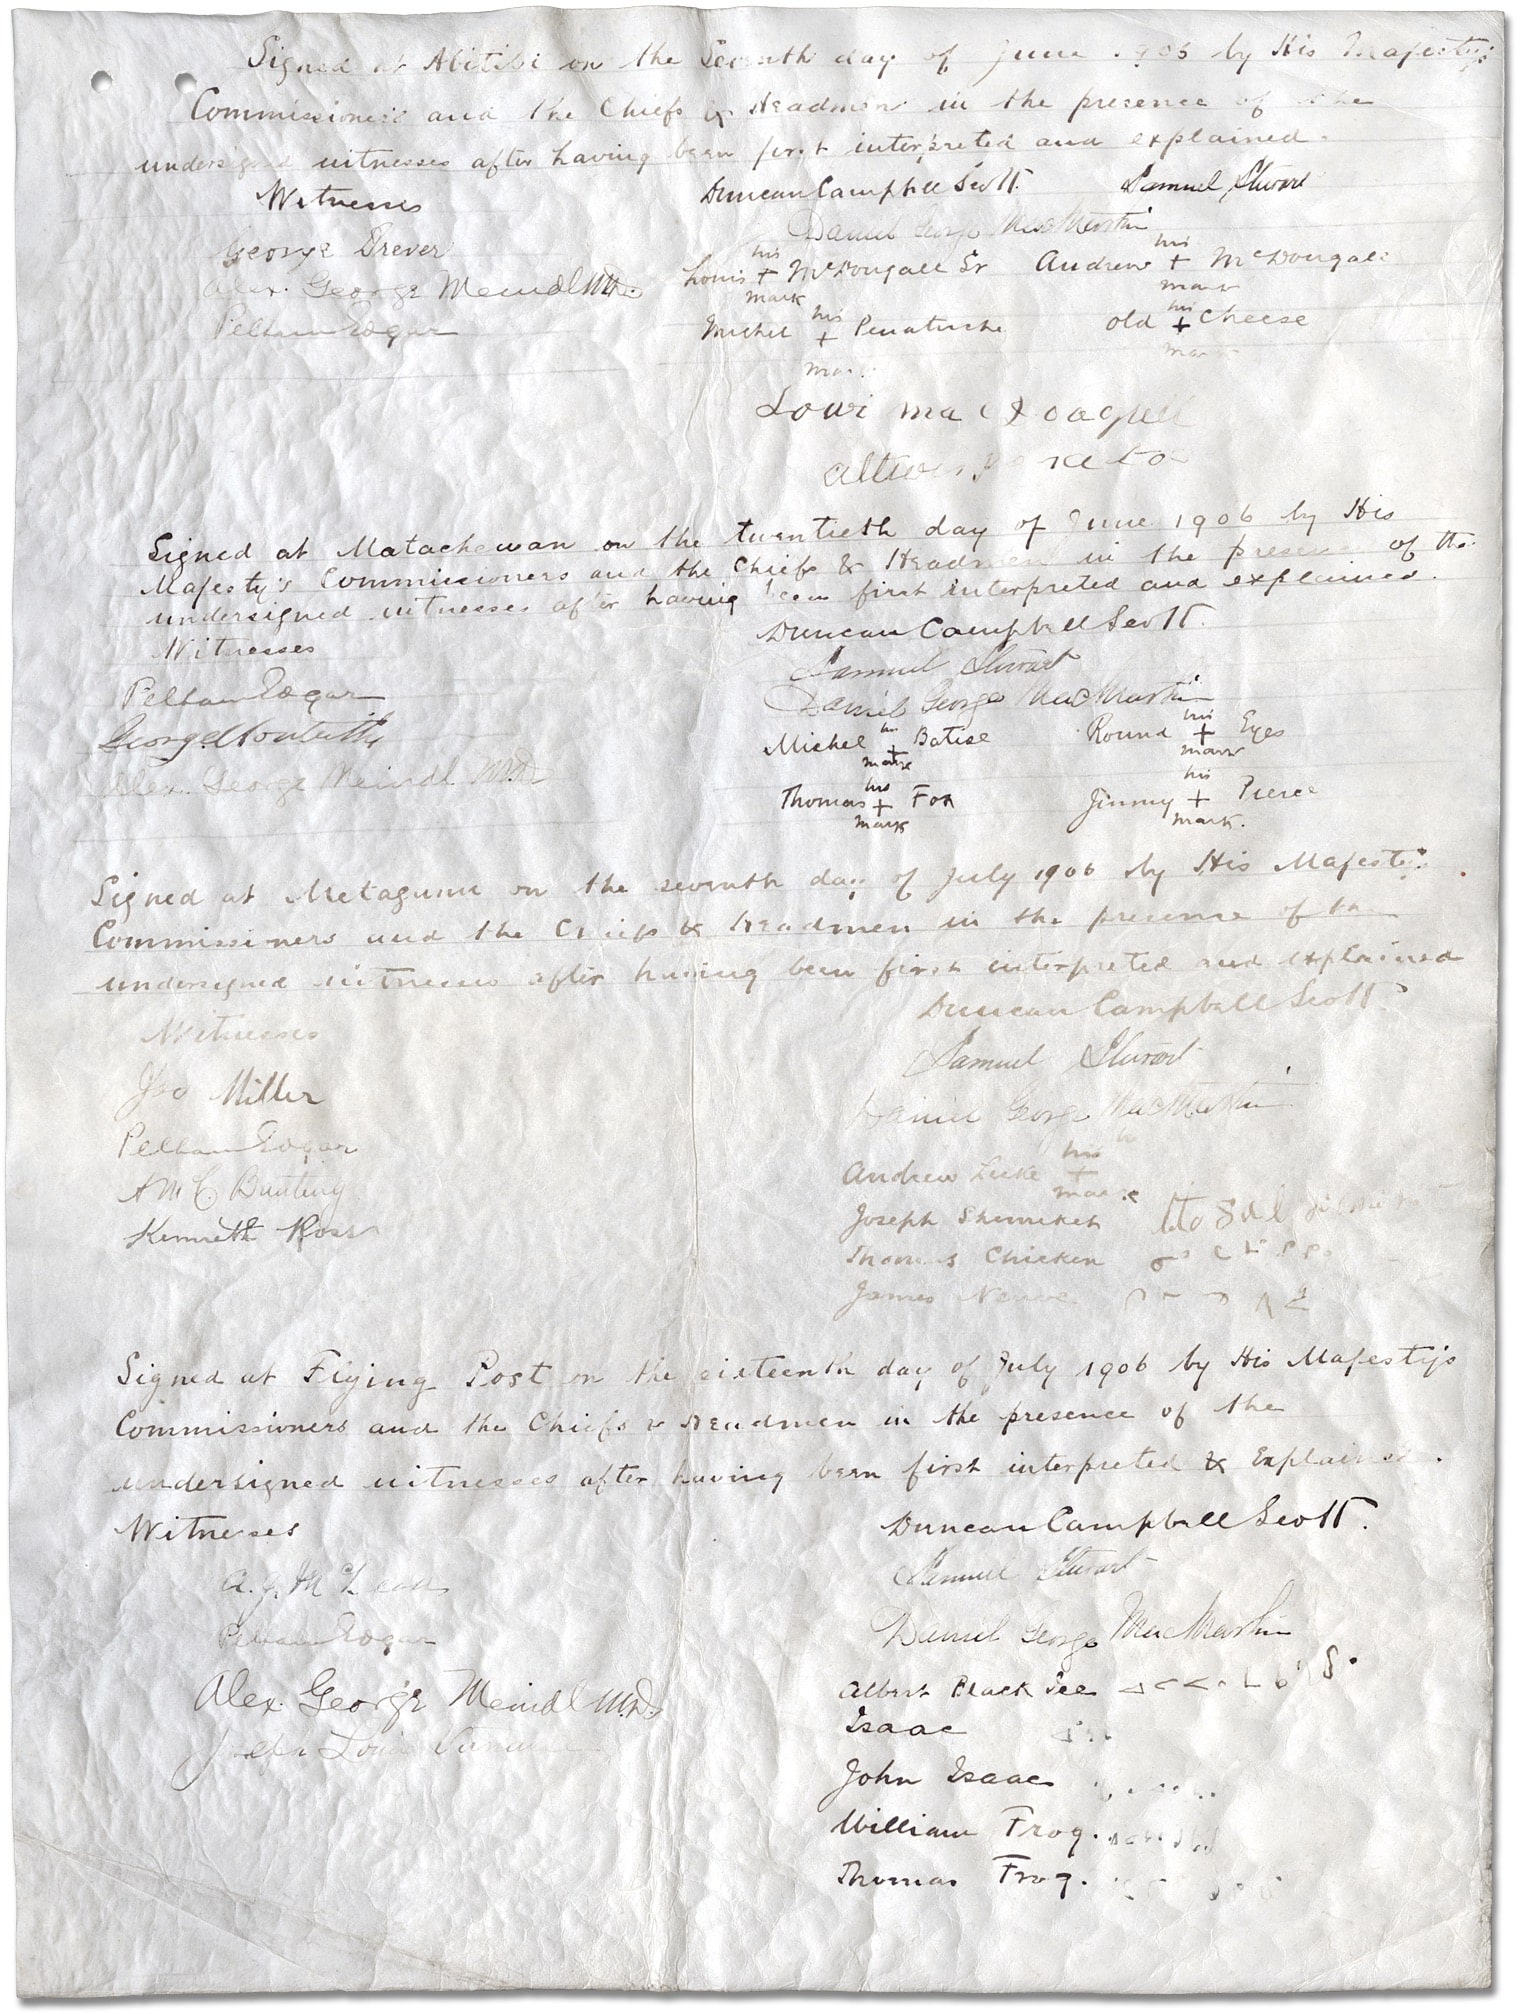 Signed at Abitibi on the Seventh day of June 1906 by His Majesty's
Commissioners and the Chiefs & Headmen in the presence of the
undersigned witnesses after having been first interpreted and explained.
Witnesses
Duncan Campbell Scott. Samuel Stewart
Daniel George MacMartin
George Drever
Louis his + mark McDougall Sr Andrew his + mark McDougall
Alex. George Meindl M.D.
Pelham Edgar
Michel his + mark Penatuche Old his + mark Cheese
Loui
Signed at Matachewan on the twentieth day of June 1906 by His
Majesty's Commissioners and the Chiefs & Headmen in the presence of the
undersigned witnesses after having been first interpreted and explained.
Witnesses
Duncan Campbell Scott.
Samuel Stewart
Pelham Edgar
Daniel George MacMartin
George Monteith
Michel his + mark Batise Round his + mark Eyes
Alex. George Meindl M.D.
Thomas his + mark Fox Jimmy his + mark Pierce
Signed at Metagama on the seventh day of July 1906 by His Majesty's
Commissioners and the Chiefs & Headmen in the presence of the
undersigned witnesses after having been first interpreted and explained
Duncan Campbell Scott.
Witnesses
Samuel Stewart
Jno Miller
Daniel George MacMartin
Pelham Edgar
Andrew Luke his + mark
A M C Bunting
Joseph Shemeket
Kenneth Ross
Thomas Chicken
James Nevue
Signed at Flying Post on the sixteenth day of July 1906 by His Majesty's
Commissioners and the Chiefs & Headmen in the presence of the
undersigned witnesses after having been first interpreted & Explained.
Witnesses
Duncan Campbell Scott.
A. J. McLeod
Samuel Stewart
Pelham Edgar
Daniel George MacMartin
Alex. George Meindl M.D.
Albert Black Ice
Joseph Louis
Isaac
John Isaac
William Frog.
Thomas Frog.